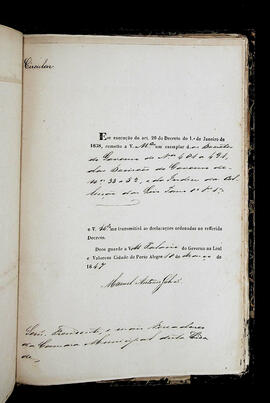 Circular
Em execução do art. 20 do Decreto do 1.º de Janeiro de
1838, remetto a V. M.ces um exemplar d
do Governo de N.os 404 a 421,
das do Governo de
n.os 33 a 52, e do Indice da
das Leis Tomo
e V. M.ces me transmittirá as declarações ordenadas no referido
Decreto.
Deos guarde a V. M. Palacio do Governo na Leal
e Valorosa Cidade de Porto Alegre 10 de Março de
1847
Manoel Antonio
Snrs. Presidente, e mais Vereadores
da Camara Municipal desta
de